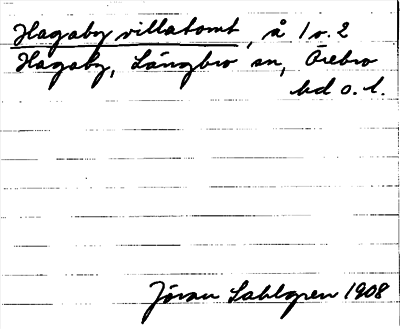 Hagaby villatomt, å 1 o. 2
Hagaby, Längbro sn, Örebro
hd o. l.
Jöran Sahlgren 1908